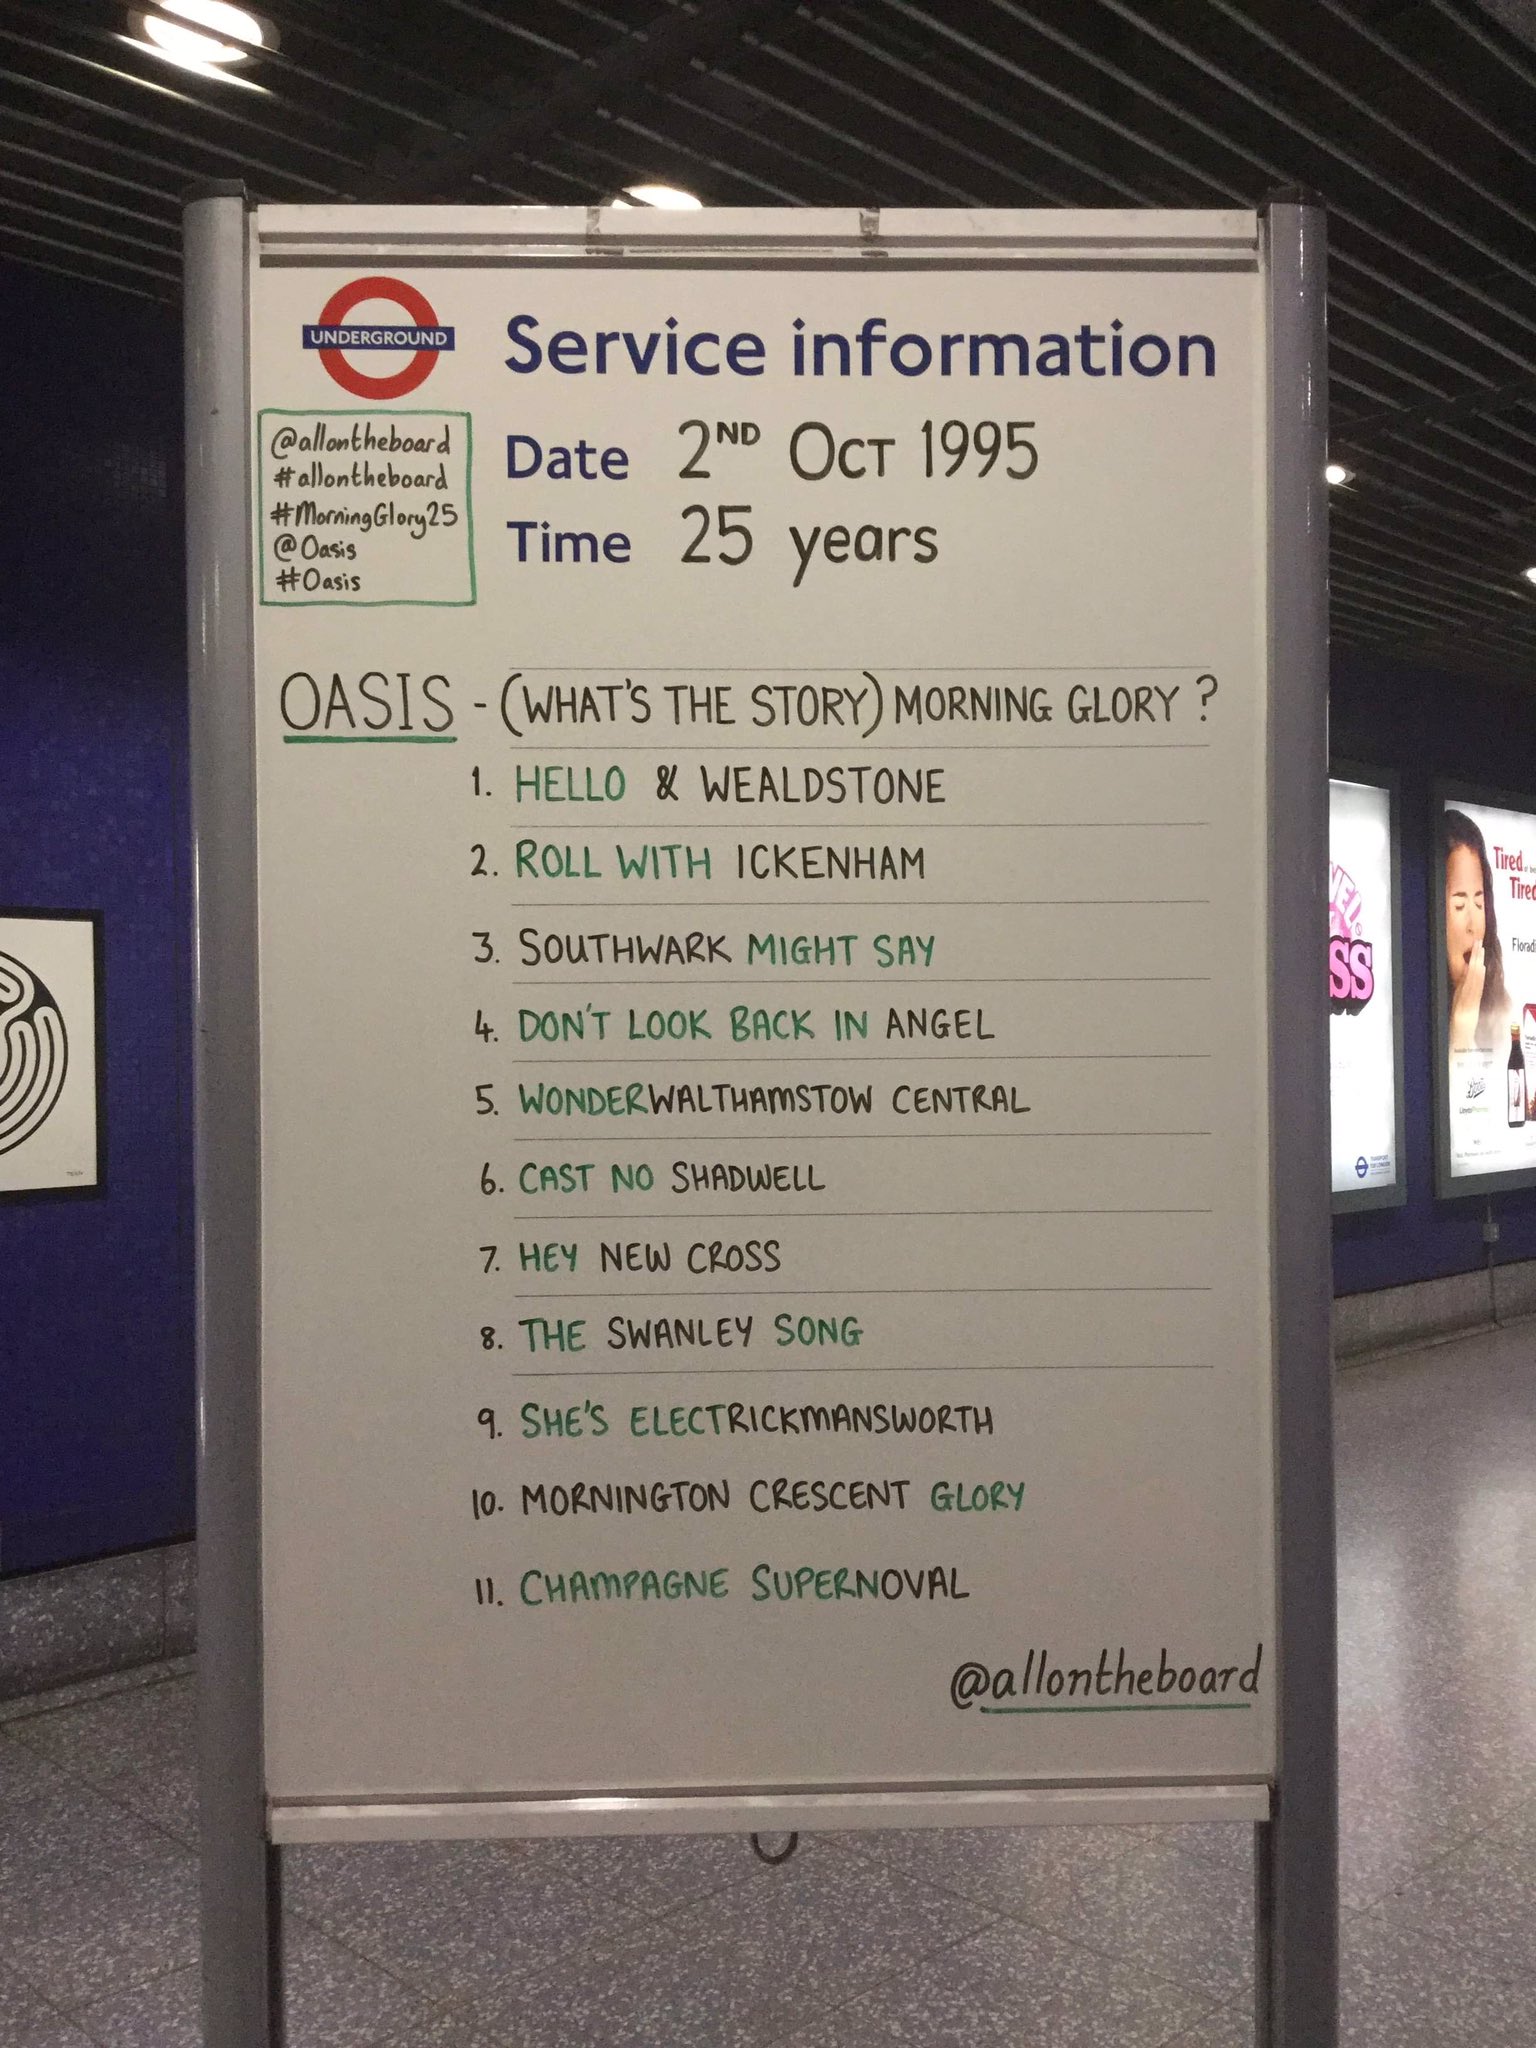 UNDERGROUND
Service information
@allontheboard
#allontheboard
#MorningGlory25
@Oasis
#Oasis
Date 2ND OCT 1995
Time 25 years
OASIS - (WHAT'S THE STORY) MORNING GLORY ?
1. HELLO & WEALDSTONE
2. ROLL WITH ICKENHAM
3. SOUTHWARK MIGHT SAY
4. DON'T LOOK BACK IN ANGEL
5. WONDERWALTHAMSTOW CENTRAL
6. CAST NO SHADWELL
7. HEY NEW CROSS
8. THE SWANLEY SONG
9. SHE'S ELECTRICKMANSWORTH
10. MORNINGTON CRESCENT GLORY
11. CHAMPAGNE SUPERNOVAL
@allontheboard
Tired
Tired